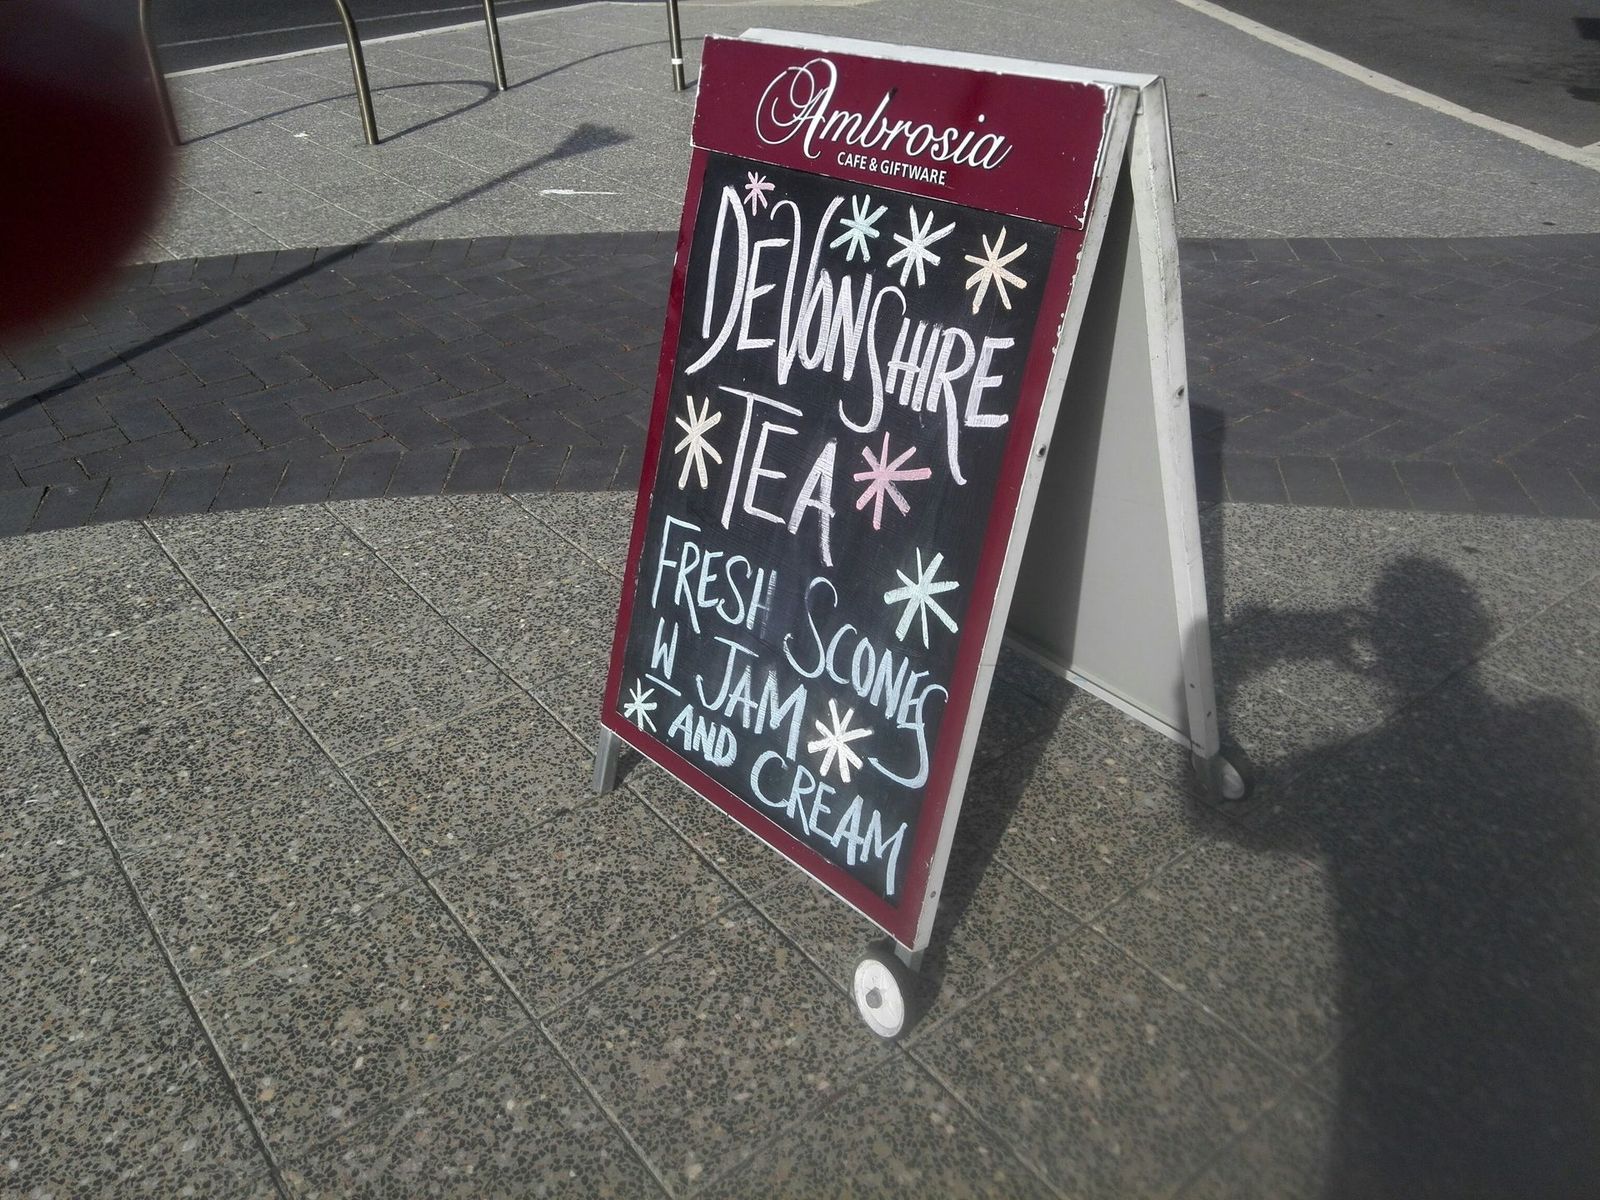 Ambrosia
CAFE & GIFTWARE
DEVONSHIRE
TEA
FRESH SCONES
W JAM
AND CREAM